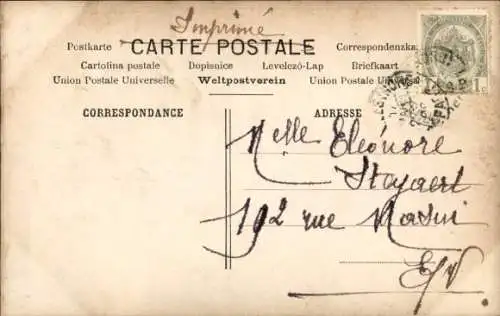 Imprimé
Postkarte CARTE POSTALE Correspondenzka
Cartolina postale Dopisnice Levelező-Lap Briefkaart
Union Postale Universelle Weltpostverein Union Postale Univers
CORRESPONDANCE ADRESSE
Melle Eléonore
Steyaert
192 rue
E/V.
1c